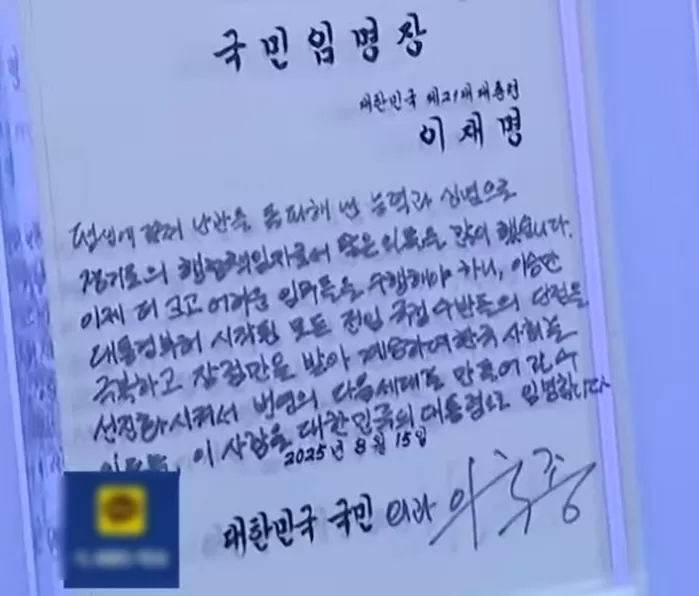 국민임명장
대한민국 제21대 대통령
이재명
평생에 걸쳐 난관을 돌파해 낸 능력과 신념으로
경기도의 행정책임자로서 많은 일을 많이 했습니다.
이제 더 크고 어려운 임무들을 수행해야 하니, 이승만
대통령부터 시작된 모든 전임 국정 수반들의 단점을
극복하고 장점만을 받아 계승하여 한국 사회를
선진화시켜서 번영의 다음세대를 만들어 갈 수
이 사람을 대한민국의 대통령으로 임명합니다
2025년 8월 15일
대한민국 국민